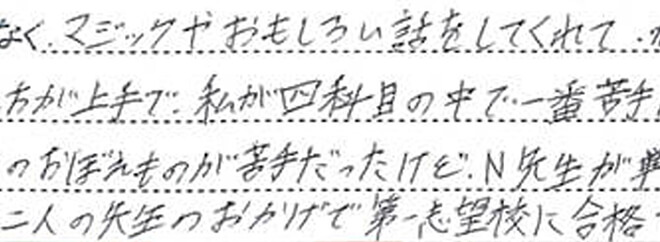 なく、マジックやおもしろい話をしてくれて、
方が上手で、私が四科目の中で一番苦手
のおぼえものが苦手だったけど、N先生が
二人の先生のおかげで第一志望校に合格